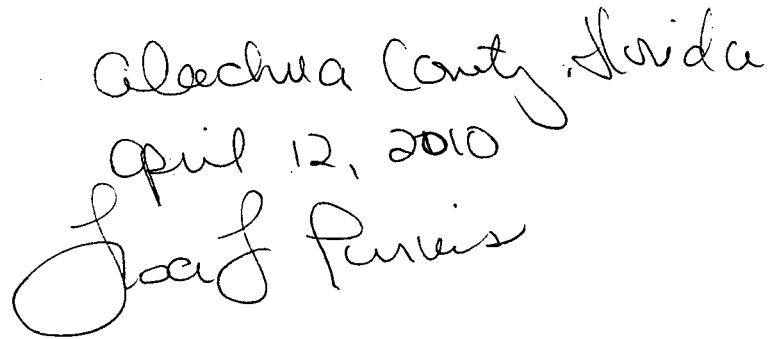 Alachua County, Florida
April 12, 2010
Purvis